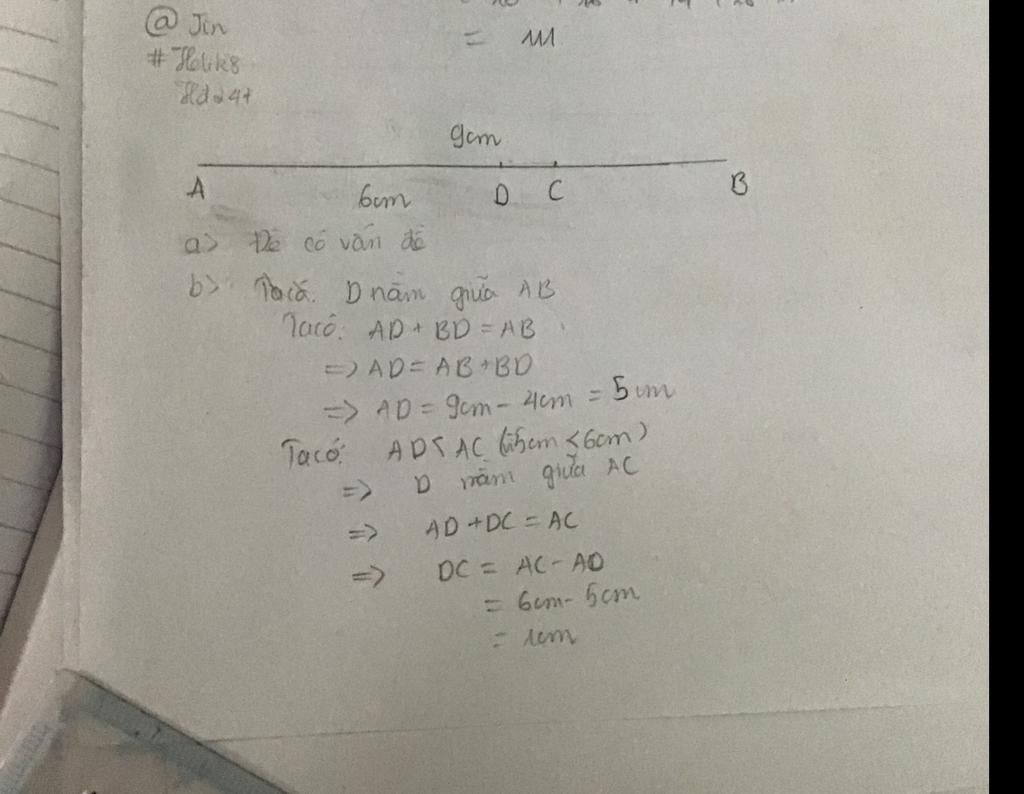 @ Jin
= 111
9cm
A 6cm D C B
a> Đề có vấn đề
b> Ta có. D nằm giữa AB
Ta có: AD + BD = AB
=> AD = AB + BD
=> AD = 9cm - 4cm = 5cm
Ta có: AD < AC (5cm < 6cm)
=> D nằm giữa AC
=> AD + DC = AC
=> DC = AC - AD
= 6cm - 5cm
= 1cm